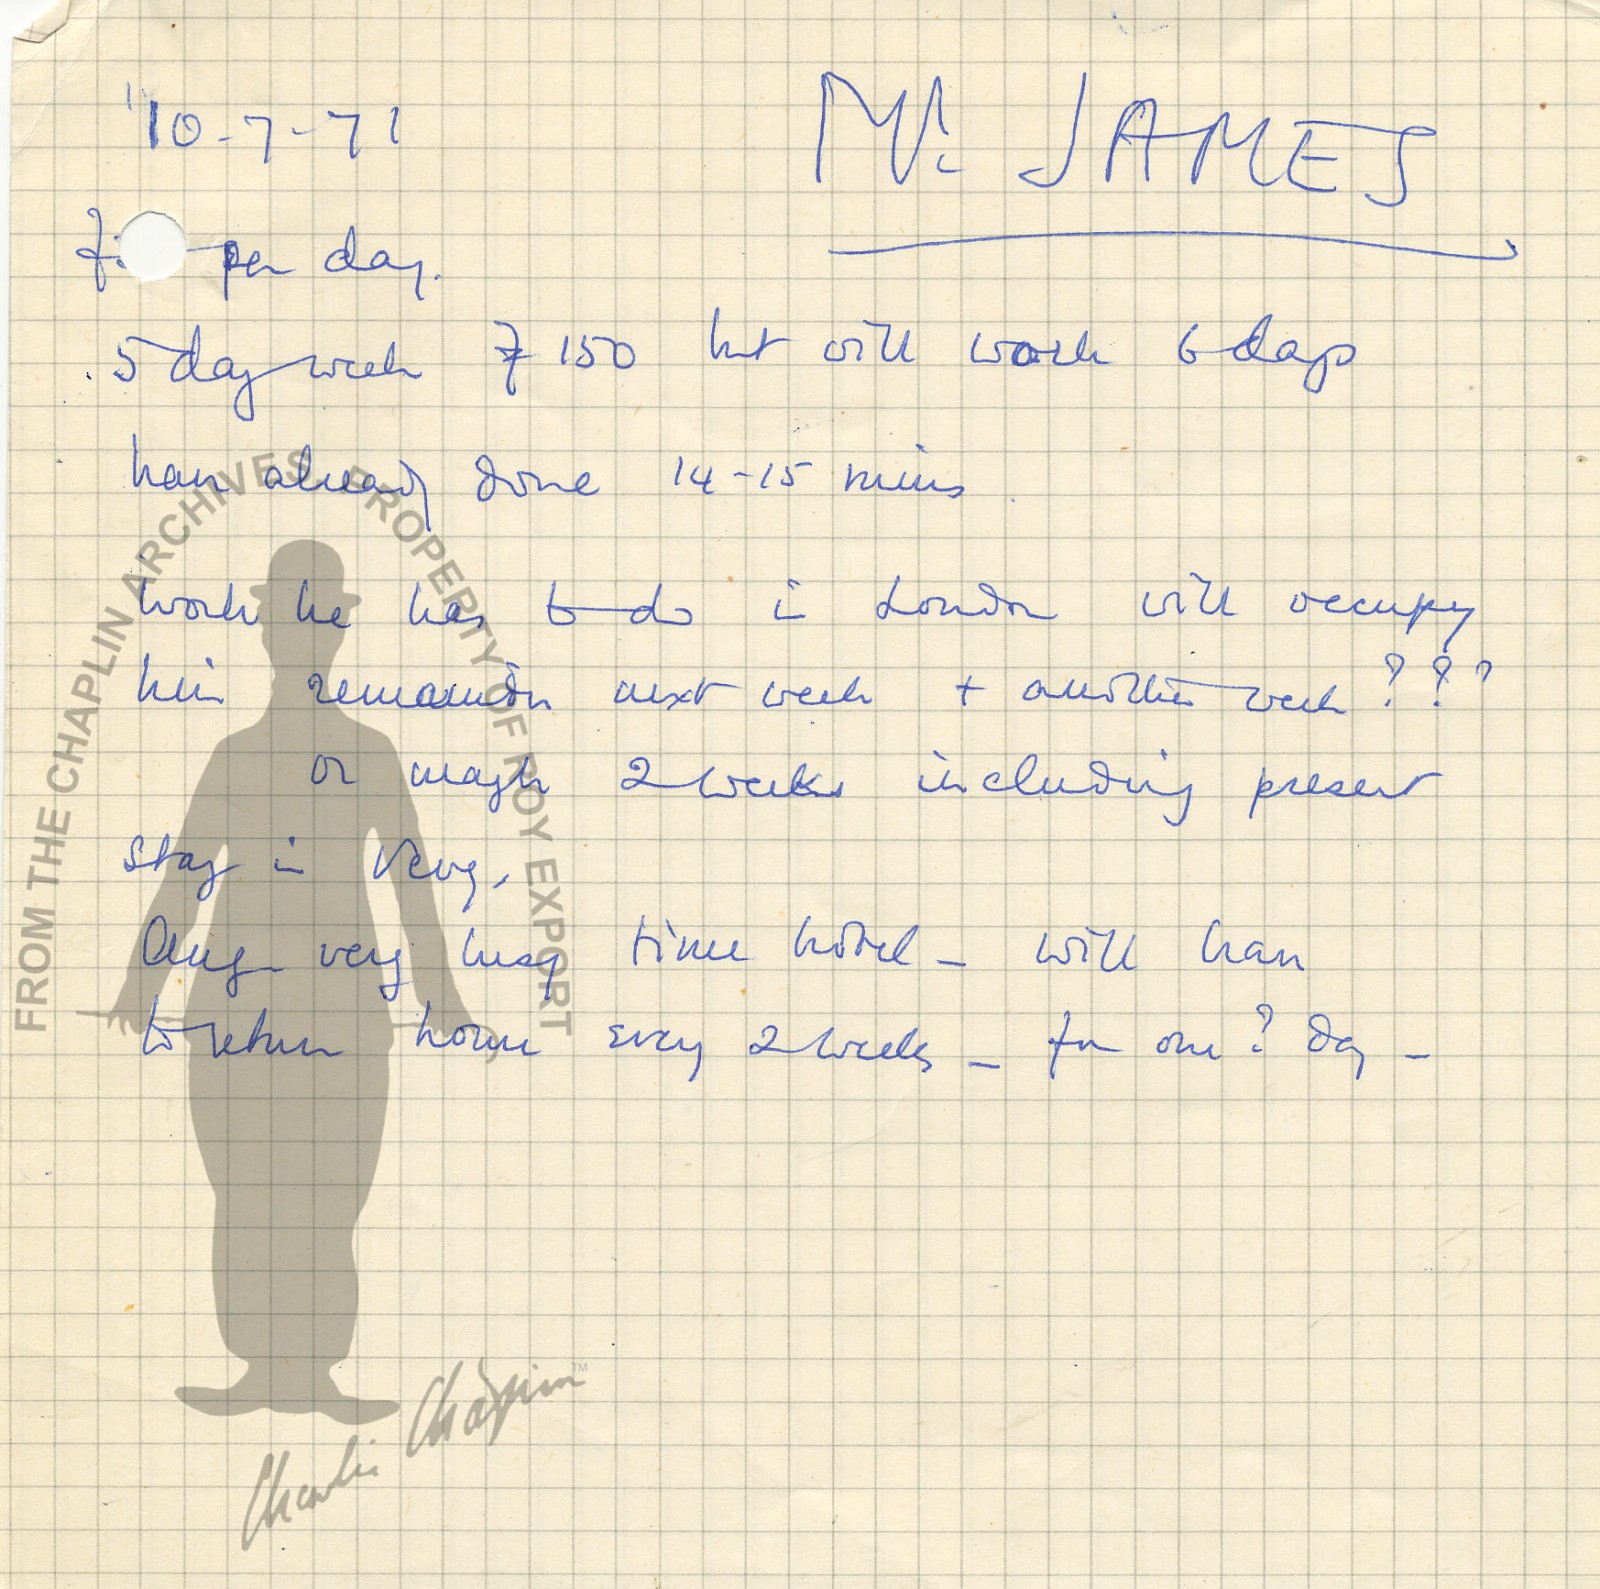 10-7-71
Mr. JAMES
per day.
5 day week £150 but will work 6 days
have already done 14-15 mins.
Work he has to do in London will occupy
him remainder next week + another week???
or maybe 2 weeks including present
stay in Vevey.
Aug - very busy time hotel - will have
to return home every 2 weeks - for one? day -
FROM THE CHAPLIN ARCHIVES PROPERTY OF ROY EXPORT
Charlie Chaplin™